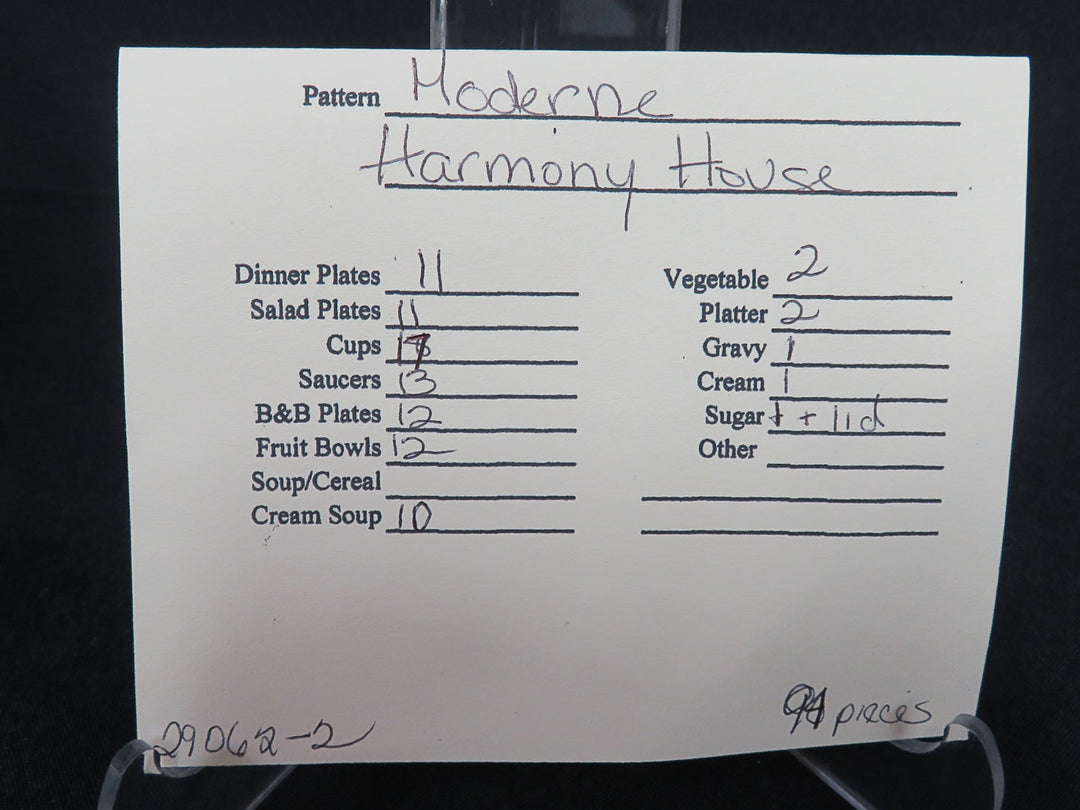 Pattern Moderne
Harmony House
Dinner Plates 11
Salad Plates 11
Cups 17
Saucers 13
B&B Plates 12
Fruit Bowls 12
Soup/Cereal
Cream Soup 10
Vegetable 2
Platter 2
Gravy 1
Cream 1
Sugar 1 + lid
Other
29062-2
94 pieces